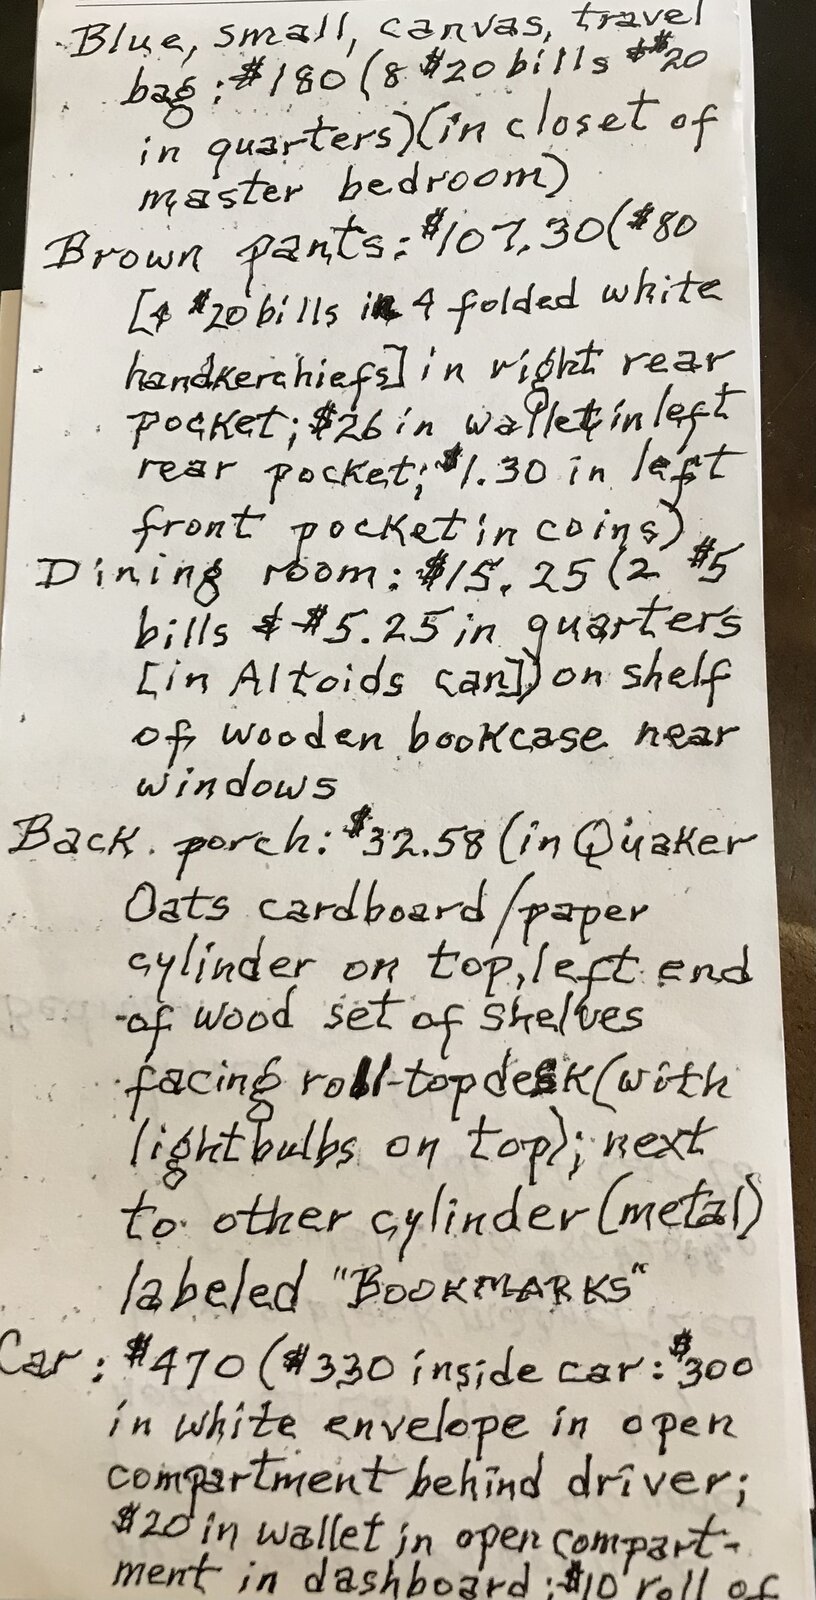 Blue, small, canvas, travel
bag: $180 (8 $20 bills & $20
in quarters)(in closet of
master bedroom)
Brown pants: $107.30($80
[4 $20 bills in 4 folded white
handkerchiefs] in right rear
pocket; $26 in wallet in left
rear pocket; $1.30 in left
front pocket in coins)
Dining room: $15.25 (2 $5
bills & $5.25 in quarters
[in Altoids can]) on shelf
of wooden bookcase near
windows
Back porch: $32.58 (in Quaker
Oats cardboard/paper
cylinder on top, left end
of wood set of shelves
facing roll-top desk (with
lightbulbs on top); next
to other cylinder (metal)
labeled "BOOKMARKS"
Car: $470 ($330 inside car: $300
in white envelope in open
compartment behind driver;
$20 in wallet in open compart-
ment in dashboard; $10 roll of